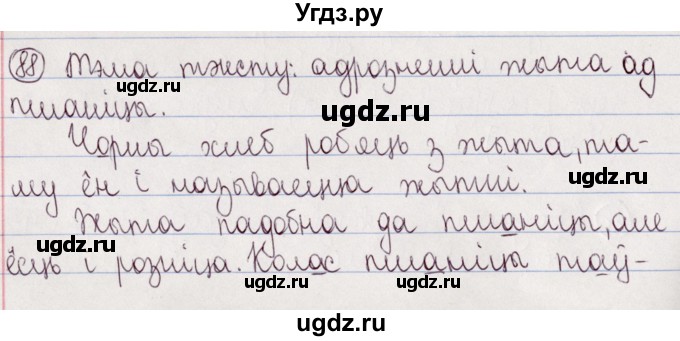 Угдз.ру
88 Тэма тэксту: адрозненні жыта ад
ugdz.ru
ugdz.ru
пшаніцы.
ugdz.ru
Чорны хлеб робяць з жыта, та-
му ён і называецца жытні.
ugdz.ru
Жыта падобна да пшаніцы, але
ugdz.ru
ёсць і розніца. Колас пшаніцы таў-
ugdz.ru
ugdz.ru
ugdz.ru